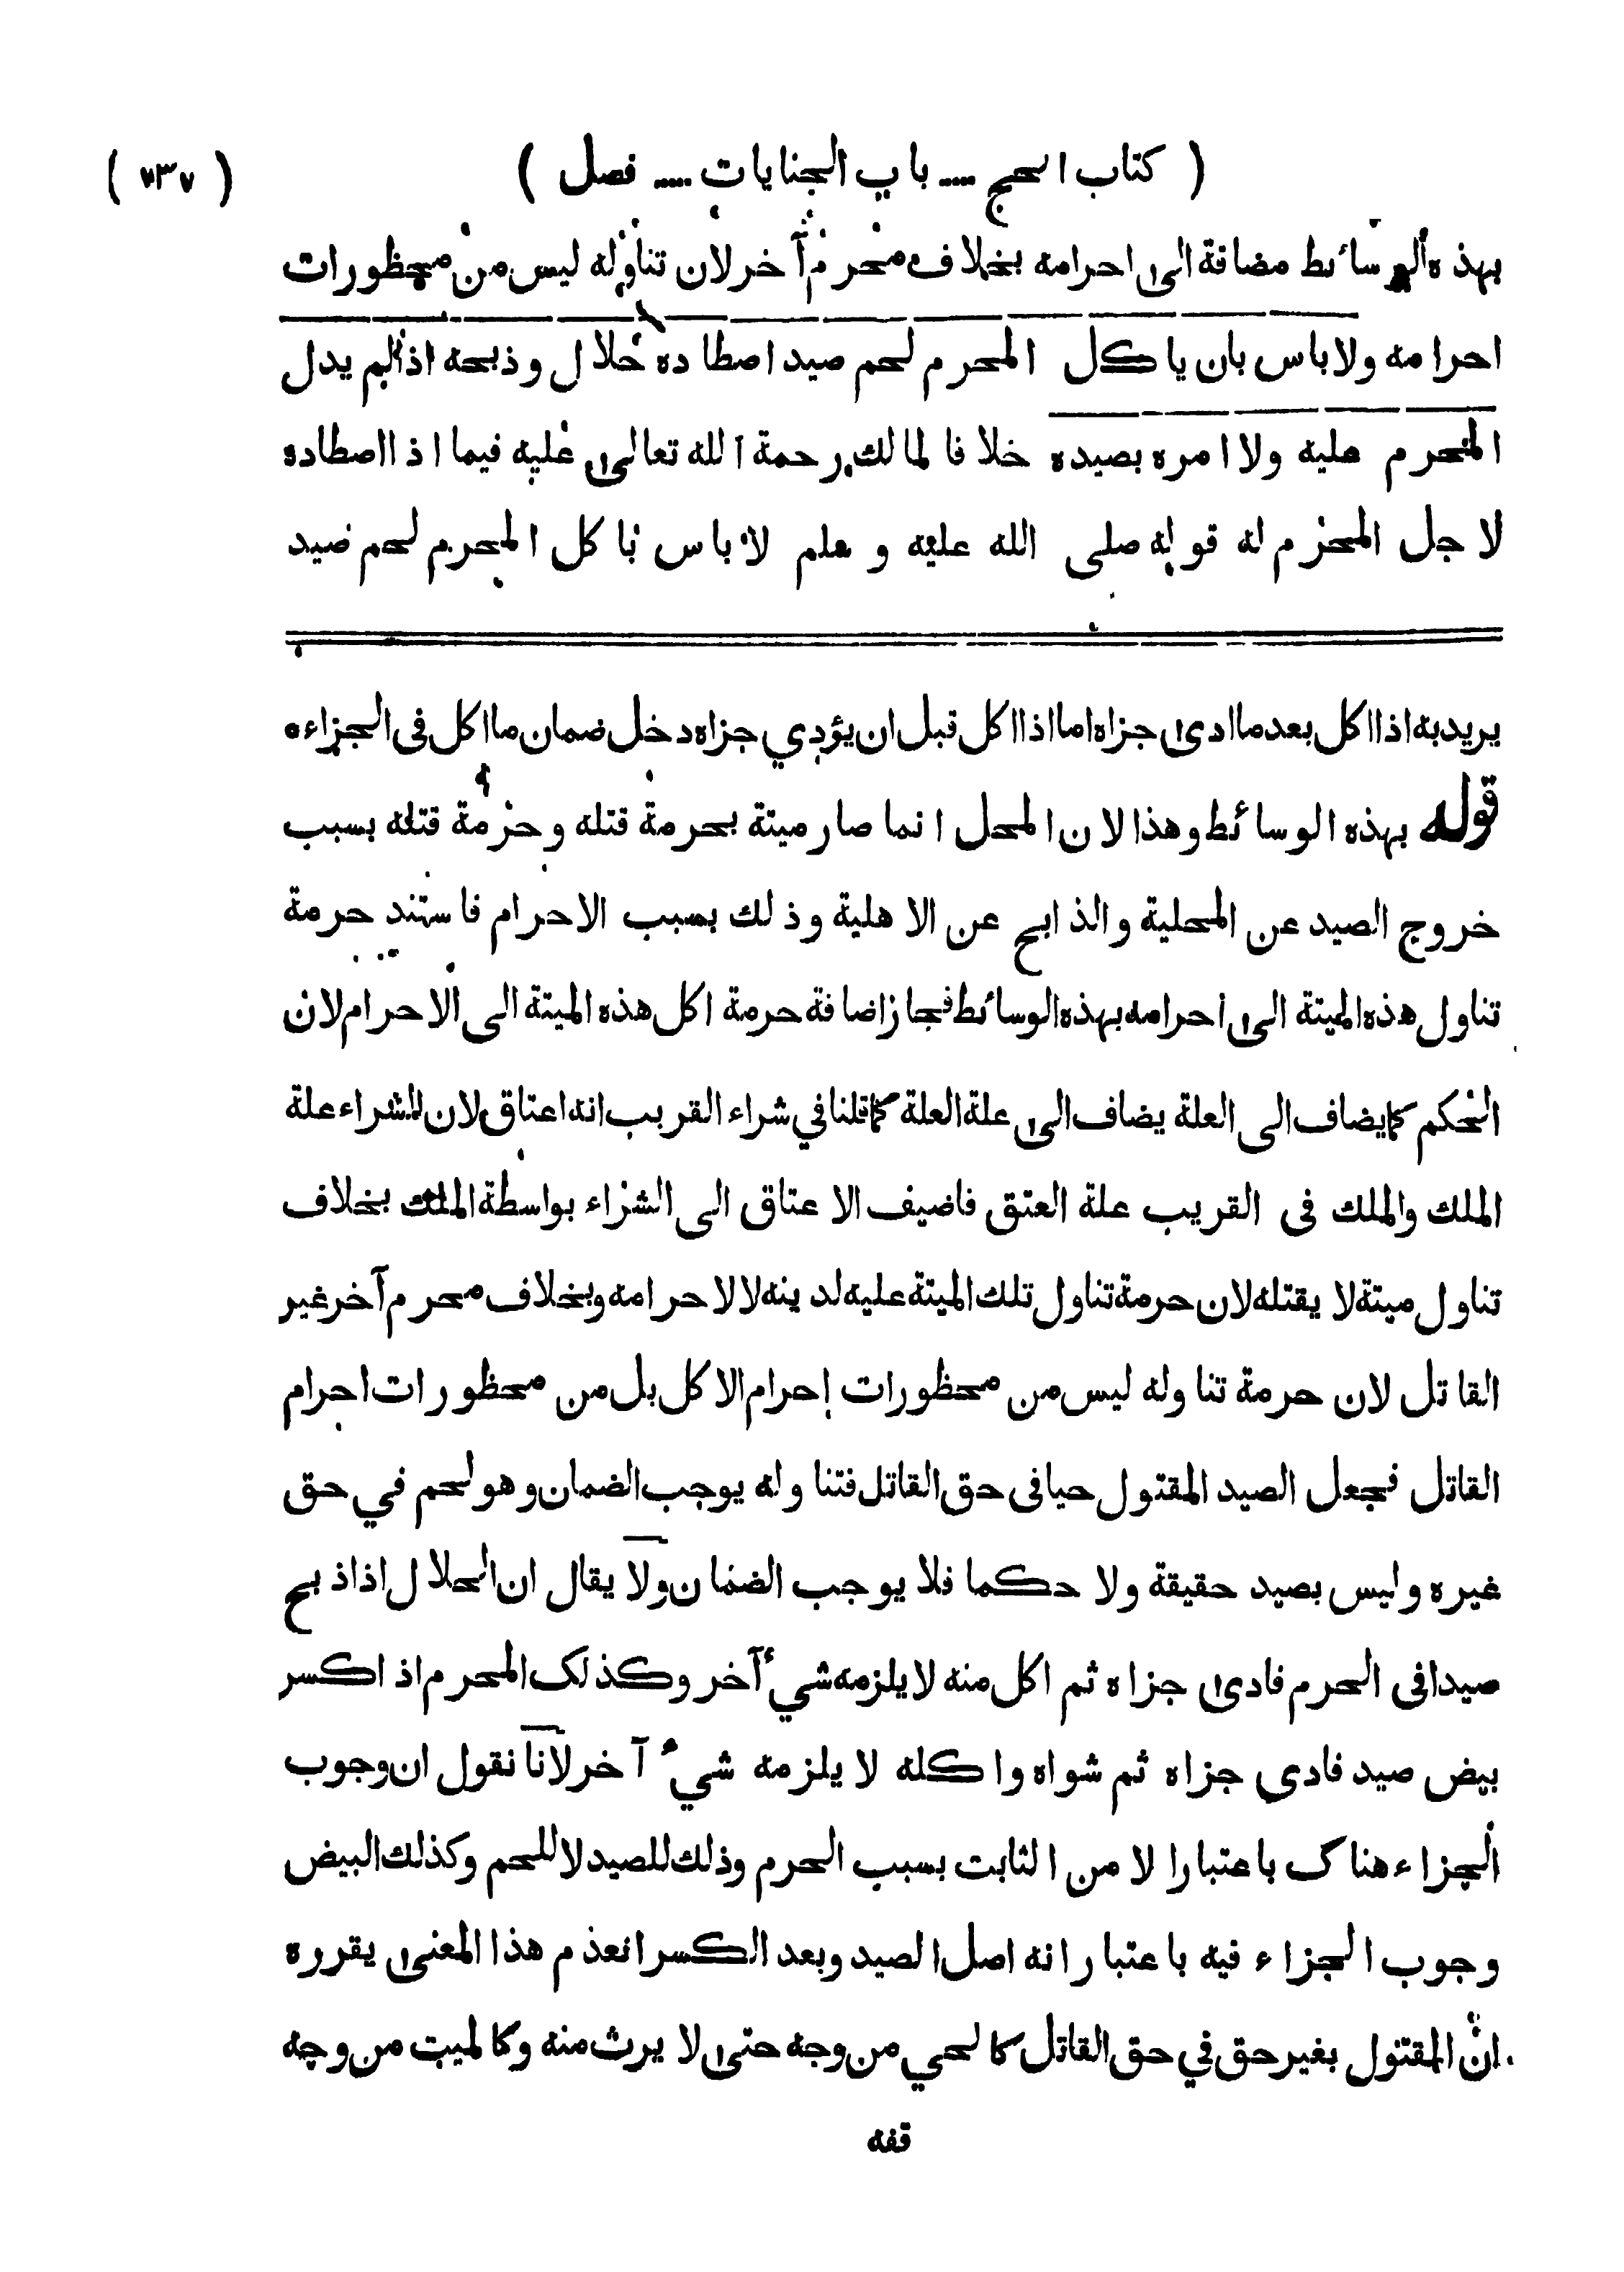 ( كتاب الحج ..... باب الجنايات ..... فصل )
( ٧٣٧ )
بهذه الوسائط مضافة الى احرامه بخلاف محرم آخر لان تناوله ليس من محظورات
احرامه ولا باس بان ياكل المحرم لحم صيد اصطاده حلال وذبحه اذا لم يدل
المحرم عليه ولا امره بصيده خلافا لمالك رحمة الله تعالى عليه فيما اذا اصطاده
لاجل المحرم له قوله صلى الله عليه و سلم لا باس با كل المحرم لحم صيد
يريد به اذا اكل بعد ما ادى جزاه اما اذا اكل قبل ان يؤدي جزاه دخل ضمان ما اكل في الجزاء ه
قوله بهذه الوسائط وهذا لان المحل انما صار ميتة بحرمة قتله وحرمة قتله بسبب
خروج الصيد عن المحلية والذابح عن الاهلية وذلك بسبب الاحرام فاستند حرمة
تناول هذه الميتة الى احرامه بهذه الوسائط فجاز اضافة حرمة اكل هذه الميتة الى الاحرام لان
الحكم كما يضاف الى العلة يضاف الى علة العلة كما قلنا في شراء القريب انه اعتاق لان الشراء علة
الملك والملك في القريب علة العتق فاضيف الاعتاق الى الشراء بواسطة الملك بخلاف
تناول ميتة لا يقتله لان حرمة تناول تلك الميتة عليه لدينه لا لاحرامه وبخلاف محرم آخر غير
القاتل لان حرمة تناوله ليس من محظورات إحرام الاكل بل من محظورات احرام
القاتل فجعل الصيد المقتول حيا في حق القاتل فتناوله يوجب الضمان وهو لحم في حق
غيره وليس بصيد حقيقة ولا حكما فلا يوجب الضمان ولا يقال ان الحلال اذا ذبح
صيدا في الحرم فادى جزاه ثم اكل منه لا يلزمه شيء آخر وكذلك المحرم اذا كسر
بيض صيد فادى جزاه ثم شواه واكله لا يلزمه شيء آخر لانا نقول ان وجوب
الجزاء هناك باعتبار الامن الثابت بسبب الحرم وذلك للصيد لا للحم وكذلك البيض
وجوب الجزاء فيه باعتبار انه اصل الصيد وبعد الكسر انعدم هذا المعنى يقرره
ان المقتول بغير حق في حق القاتل كالحي من وجه حتى لا يرث منه وكالميت من وجه
قفه